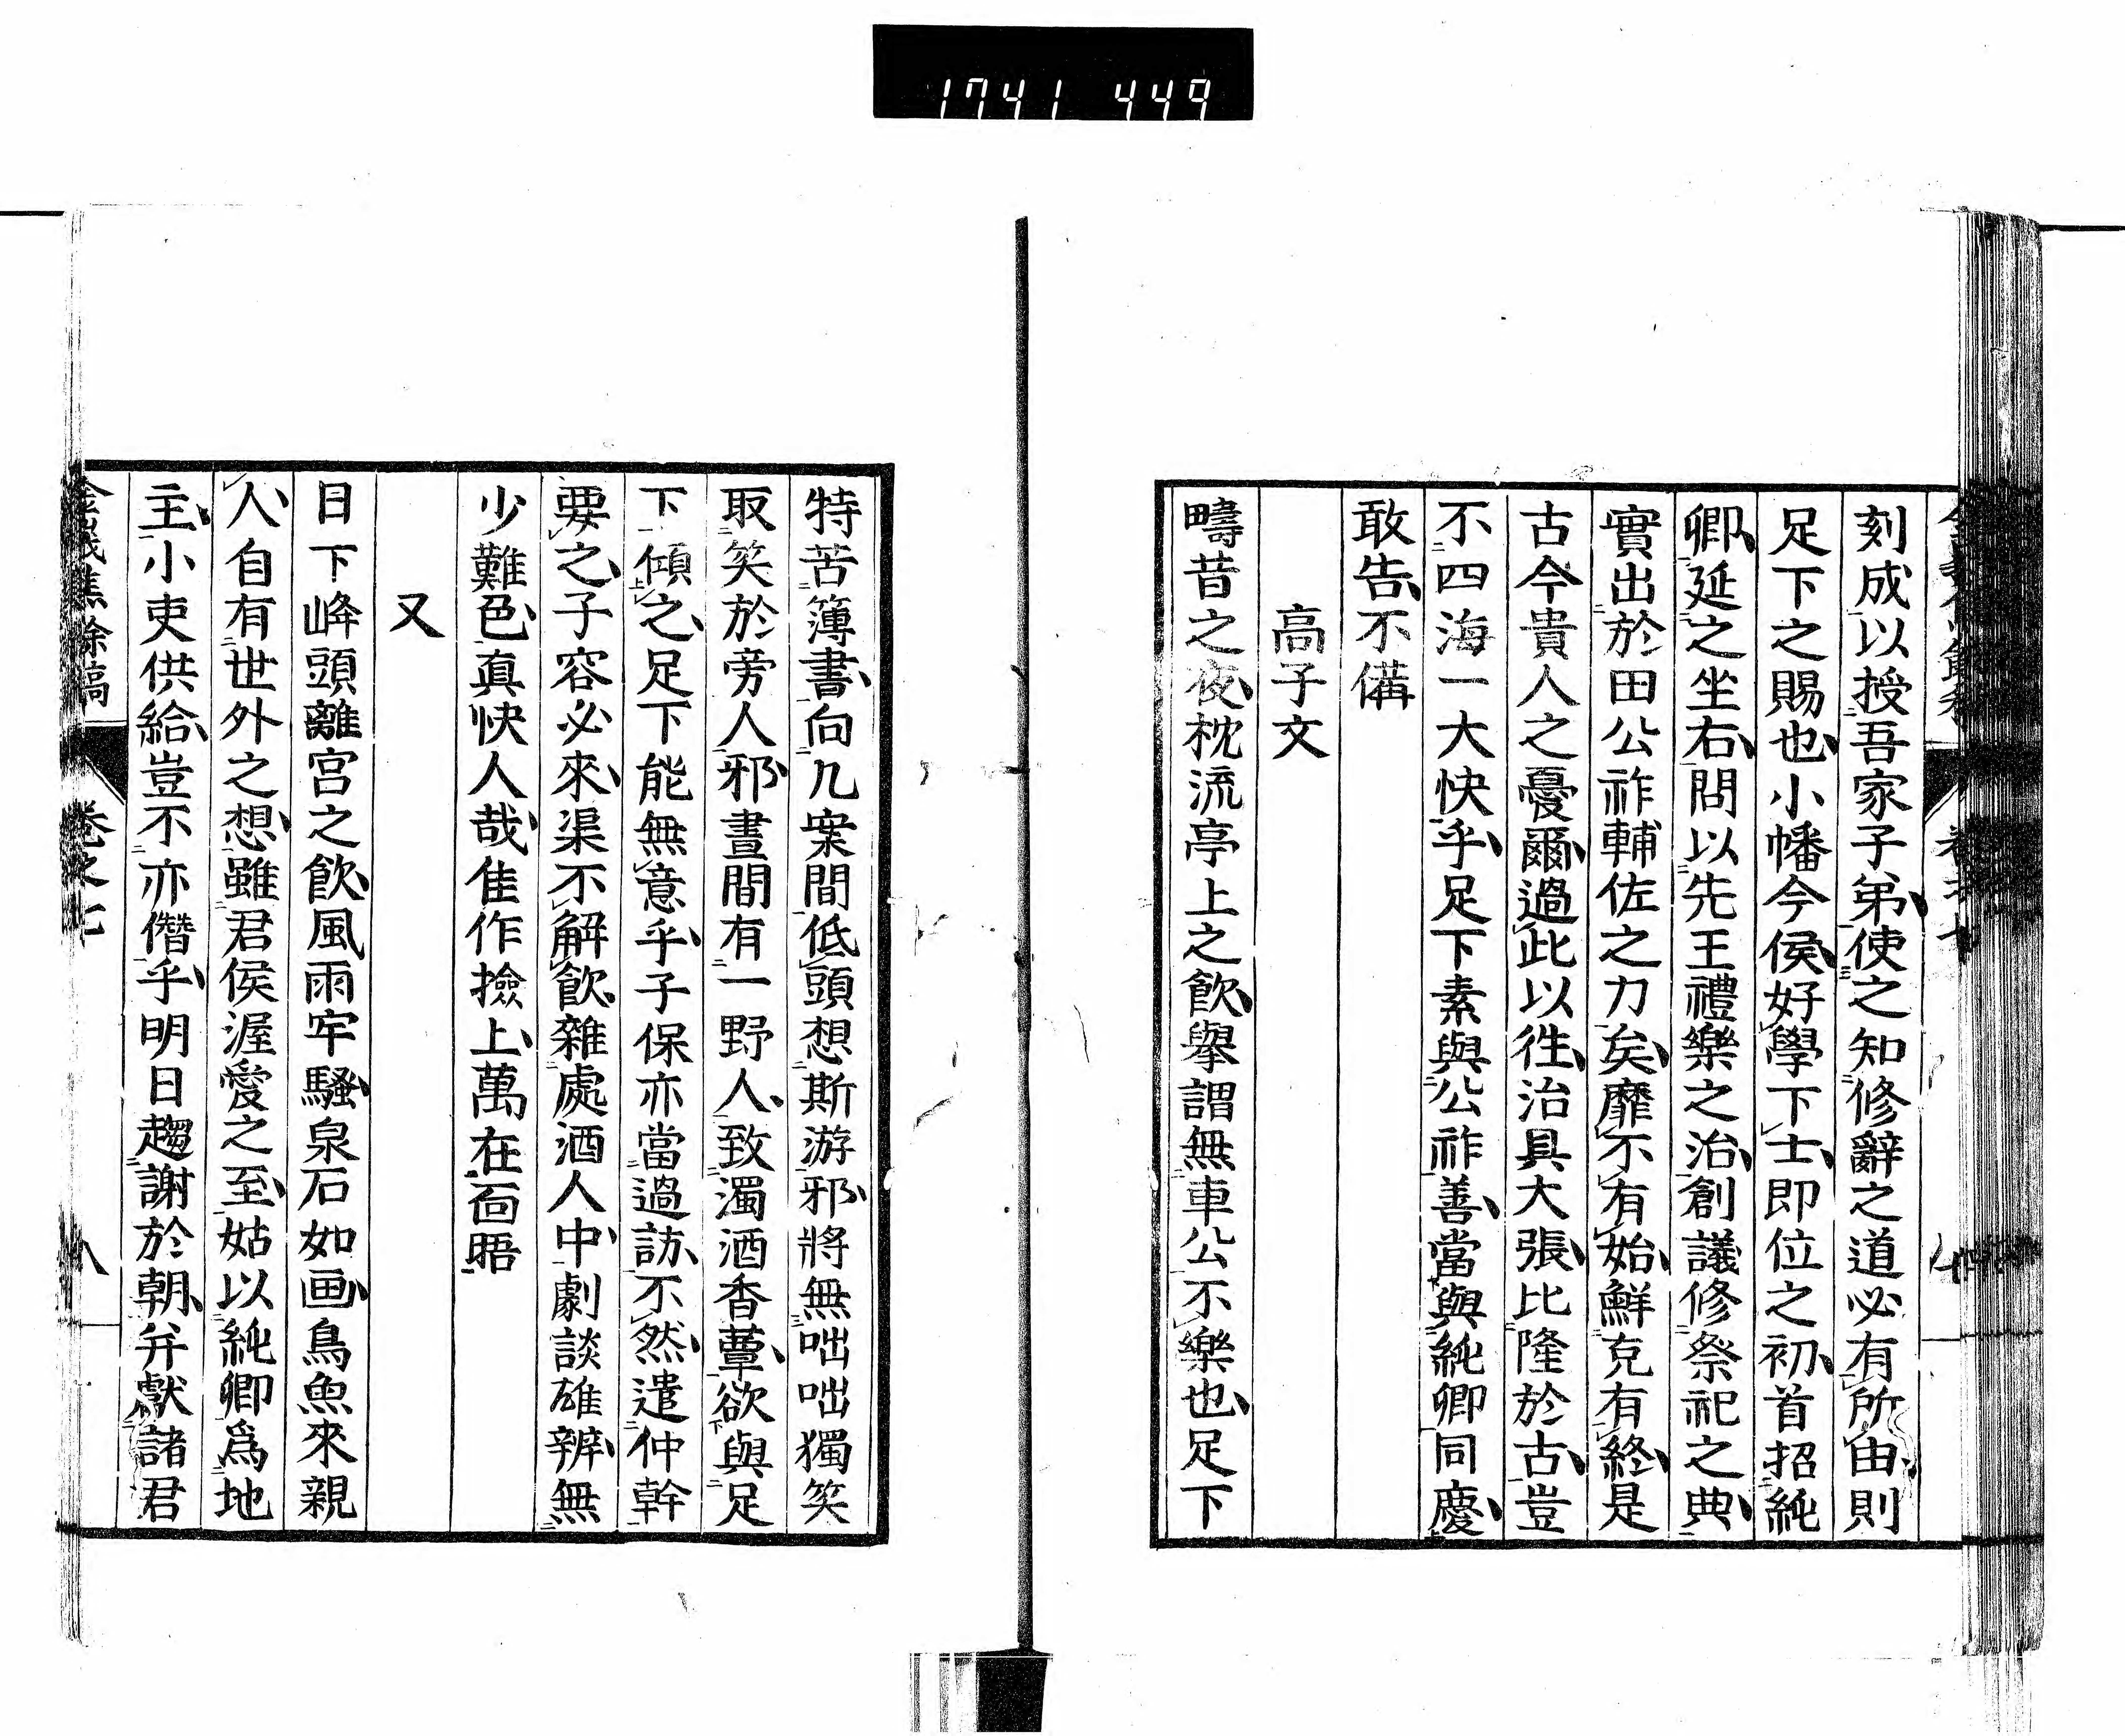 1741 449
刻成以授吾家子弟使之知修辭之道必有所由則
足下之賜也小幡今侯好學下士即位之初首招純
卿延之坐右問以先王禮樂之治創議修祭祀之典
實出於田公祚輔佐之力矣靡不有始鮮克有終是
古今貴人之憂爾過此以徃治具大張比隆於古豈
不四海一大快乎足下素與公祚善當與純卿同慶
敢告不備
高子文
疇昔之夜枕流亭上之飲擧謂無車公不樂也足下
特苦簿書向几案間低頭想斯游邪將無咄咄獨笑
取笑於旁人邪晝間有一野人致濁酒香蕈欲與足
下傾之足下能無意乎子保亦當過訪不然遣仲幹
要之子容必來渠不解飲雜處酒人中劇談雄辨無
少難色真快人哉佳作撿上萬在面晤
又
日下峰頭離宮之飲風雨牢騷泉石如画鳥魚來親
人自有世外之想雖君侯渥愛之至姑以純卿爲地
主小吏供給豈不亦僭乎明日趨謝於朝并獻諸君
金峩焦餘稿 卷之七 八